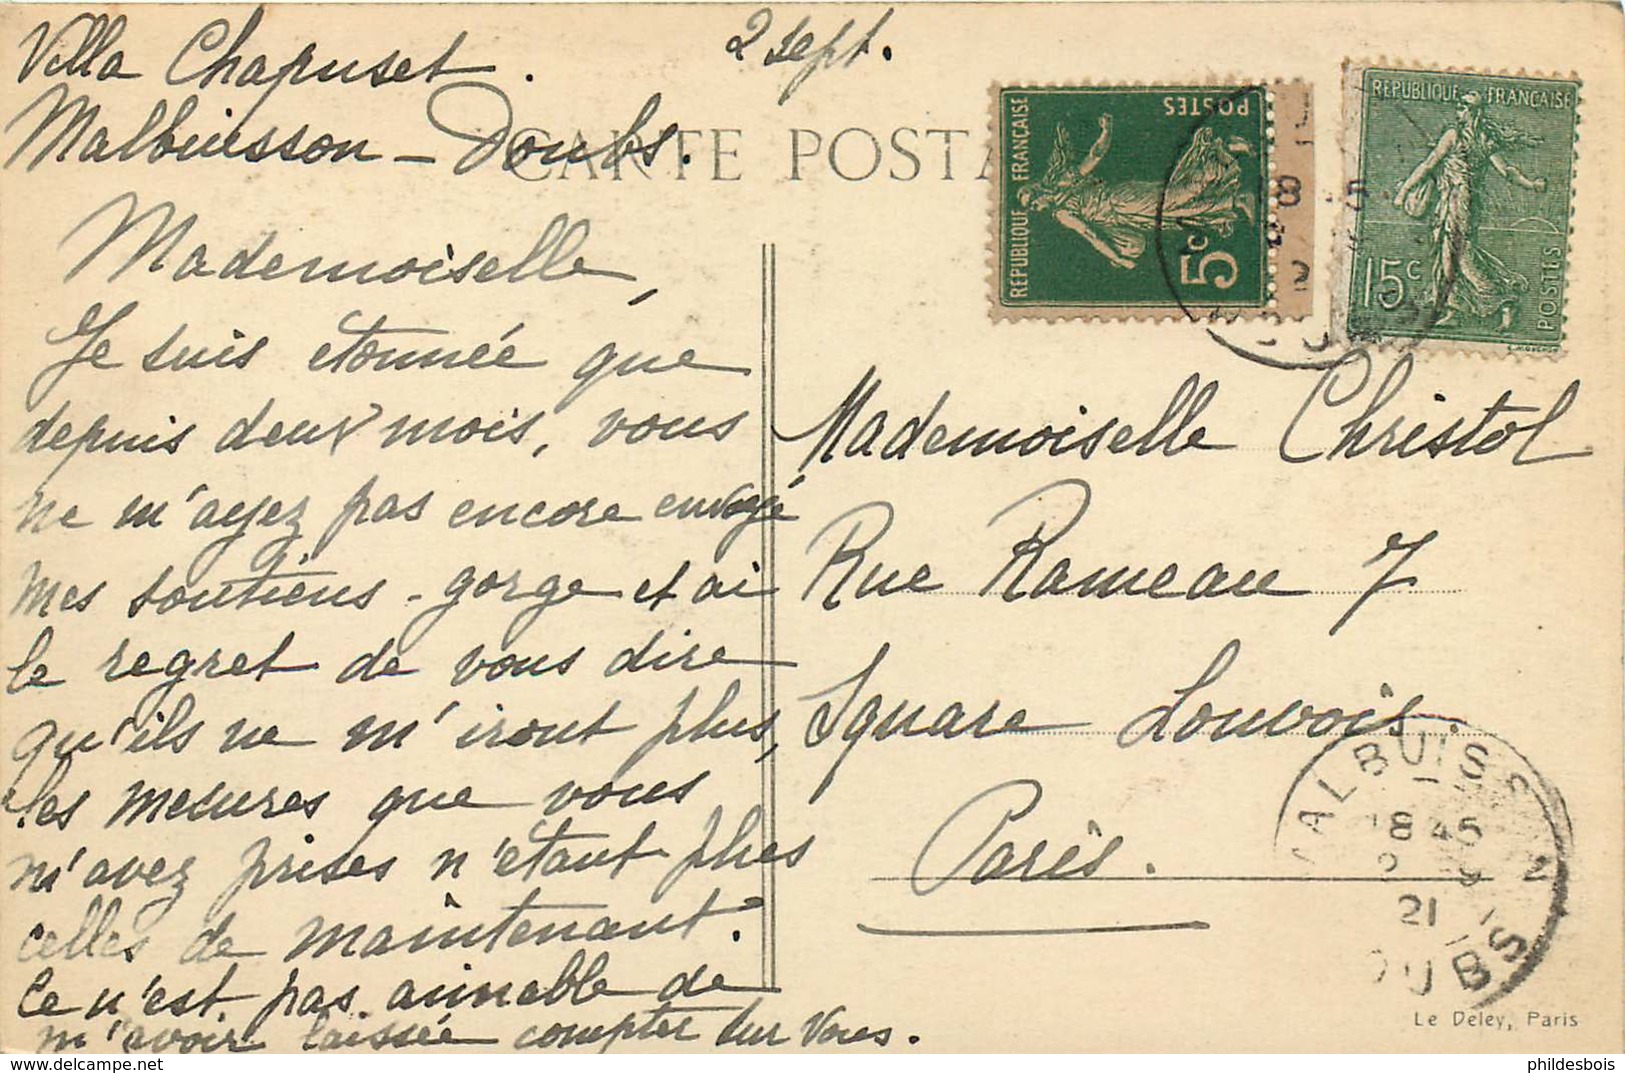 Villa Chapuset.
2 sept.
Malbuisson - Doubs.
CARTE POSTA
Mademoiselle,
Je suis étonnée que
depuis deux mois, vous
ne m'ayez pas encore envoyé
mes soutiens-gorge et ai
le regret de vous dire
qu'ils ne m'iront plus,
les mesures que vous
m'avez prises n'étant plus
celles de maintenant.
Ce n'est pas aimable de
m'avoir laissée compter sur vous.
REPUBLIQUE FRANÇAISE
POSTES
5c
REPUBLIQUE FRANÇAISE
15c
POSTES
Mademoiselle Christol
Rue Rameau 7
Square Louvois.
Paris.
ALBUISS
18 45
2 9
21
OUBS
Le Deley, Paris
phildesbois